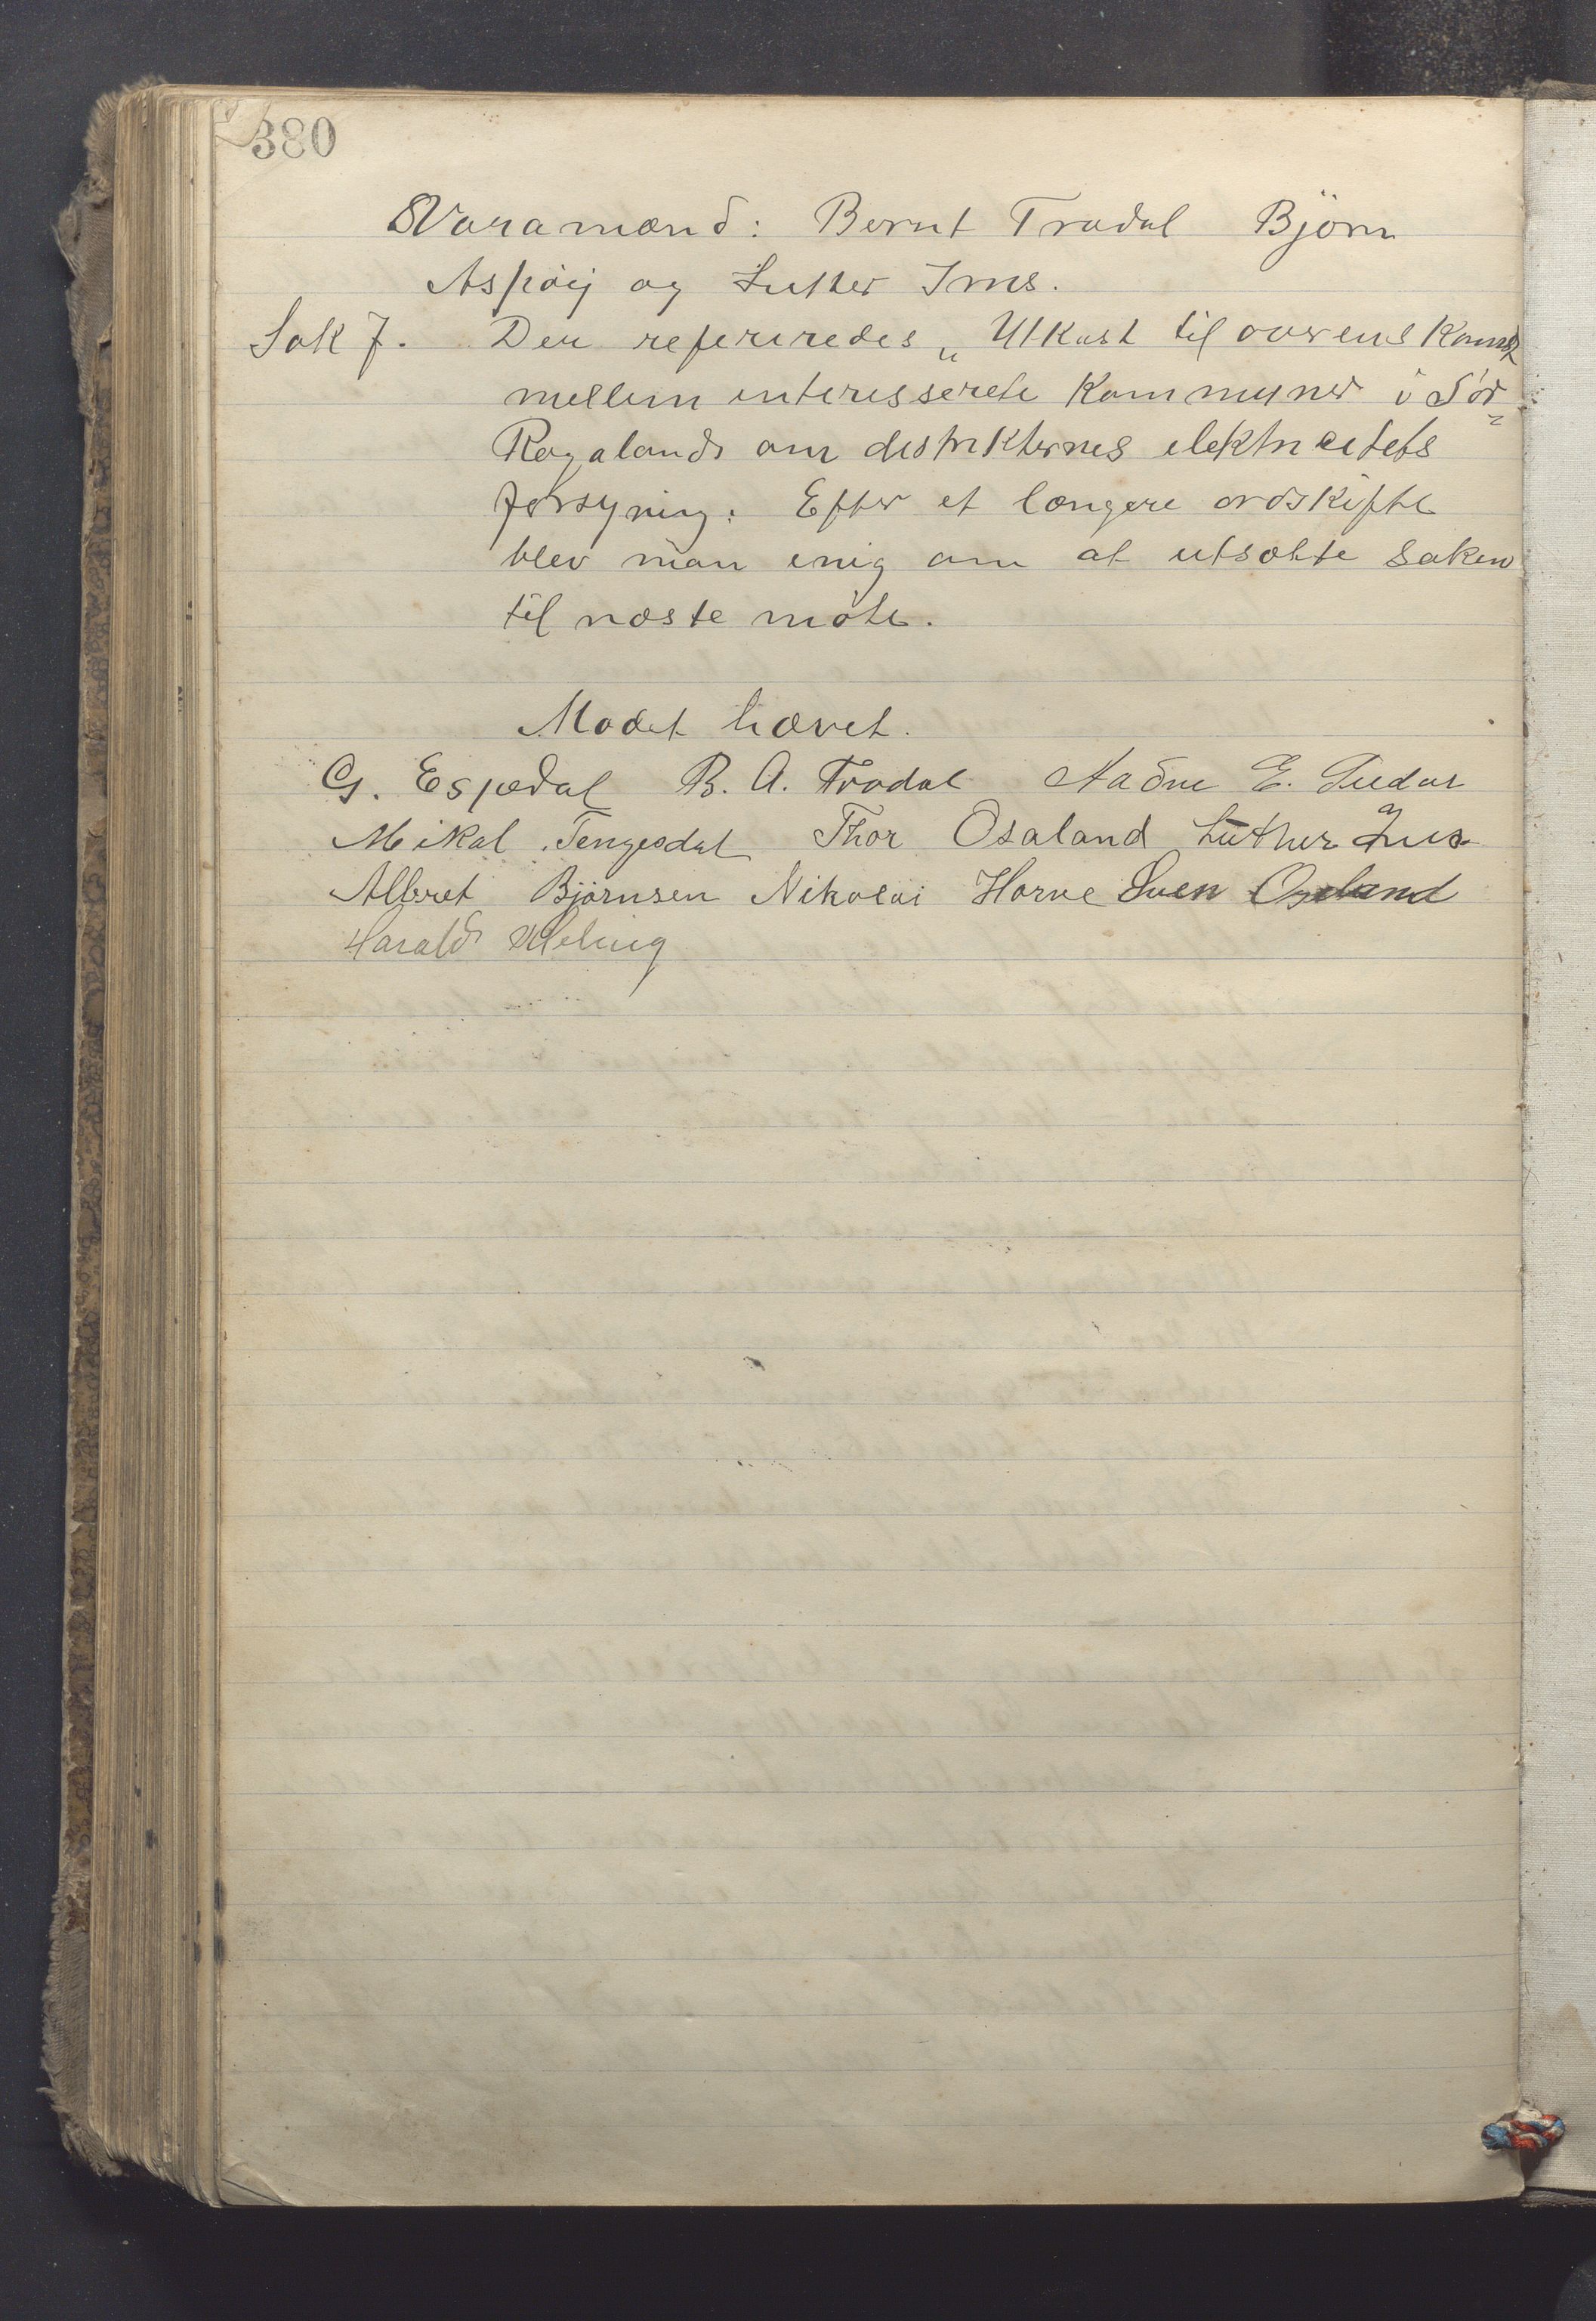 380
Varamænd: Bernt Tradal Björn
Aspöij og Luther Ims.
Sak 7. Der refereredes „Utkast til overenskomst
mellem interesserete Kommuner i Sör-
Rogaland om distrikternes elektricitets
forsyning: Efter et længere ordskifte
blev man enig om at utsætte saken
til næste möte.
Mödet hævet.
G. Espedal B. A. Tradal Aadne E.
Mikal Tengesdal Thor Osaland Luther Ims
Albret Björnsen Nikolai Horve Sven Osaland
Harald Meling